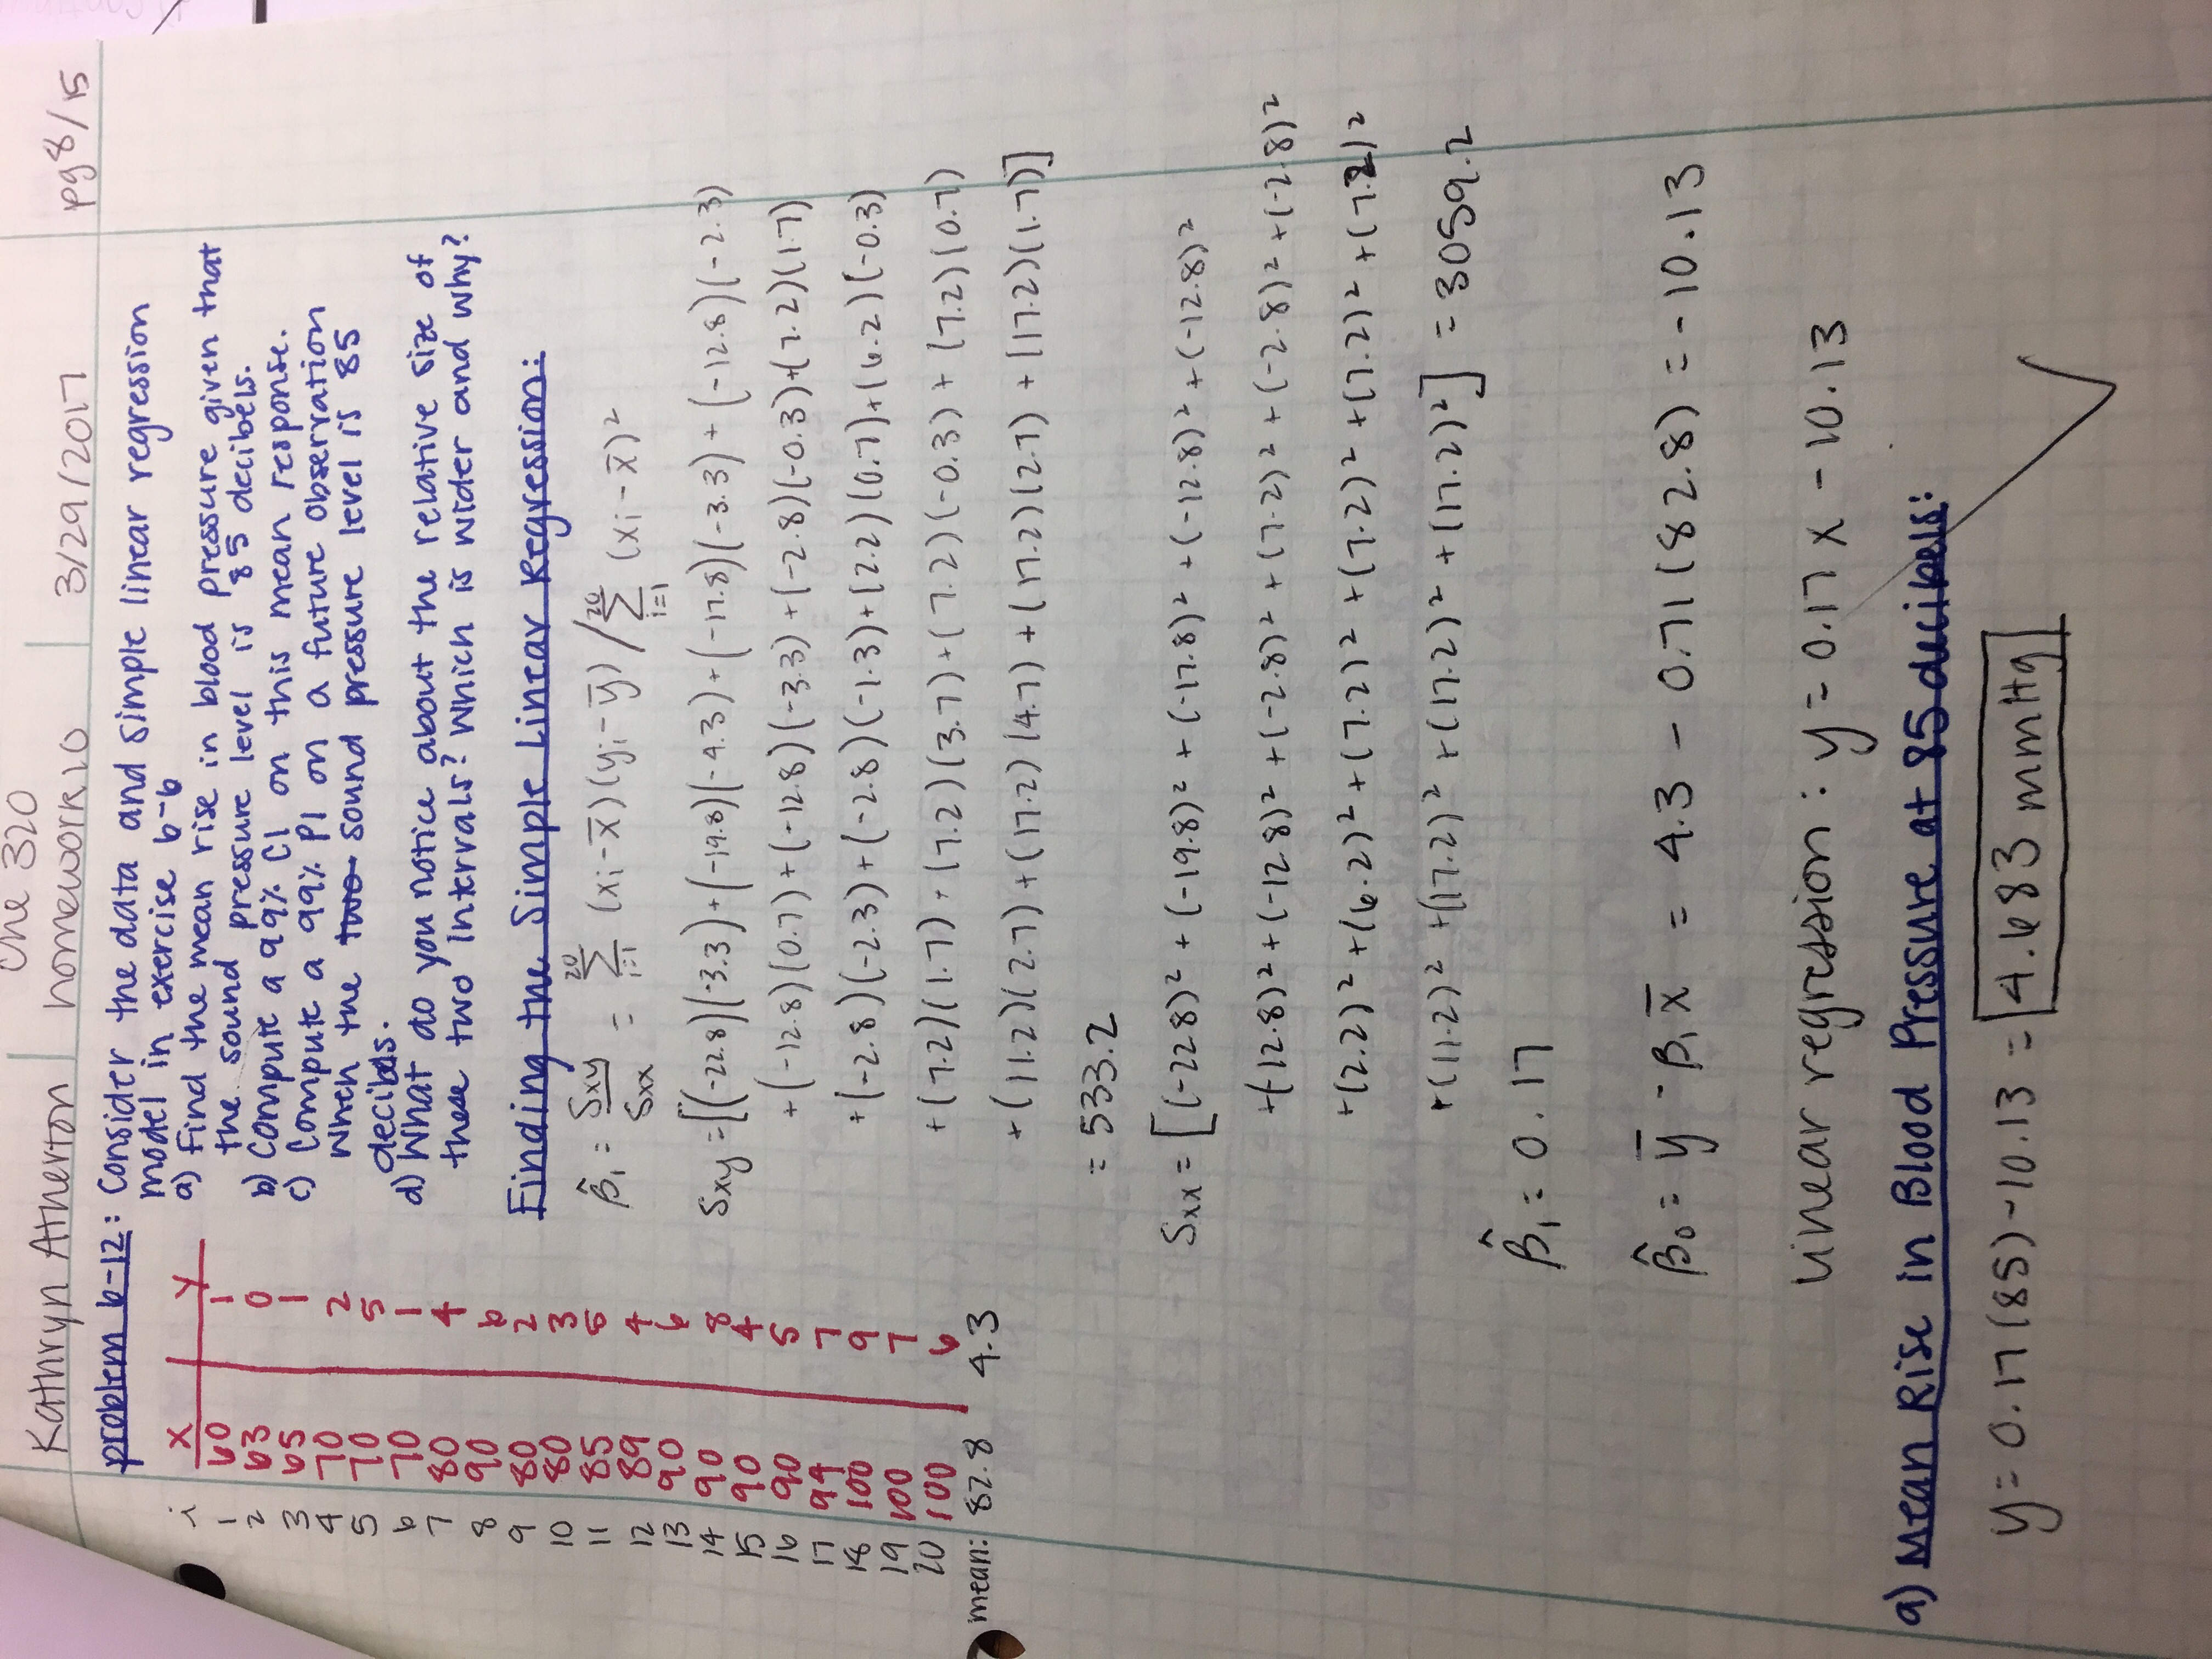 Kathryn Atherton
Che 320
homework 10
3/29/2017
pg 8/15
problem 6-12: Consider the data and simple linear regression
model in exercise 6-6
a) Find the mean rise in blood pressure given that
the sound pressure level is 85 decibels.
b) Compute a 99% CI on this mean response.
c) Compute a 99% PI on a future observation
when the two sound pressure level is 85
decibels.
d) What do you notice about the relative size of
these two intervals? Which is wider and why?
i x y
1 60 1
2 63 0
3 65 1
4 70 2
5 70 5
6 70 1
7 80 4
8 90 6
9 80 2
10 80 3
11 85 5
12 89 4
13 90 6
14 90 8
15 90 4
16 90 5
17 94 7
18 100 9
19 100 7
20 100 6
mean: 82.8 4.3
Finding the Simple Linear Regression:
β̂₁ = Sxy/Sxx = 20 Σ i=1 (xi - x̄)(yi - ȳ) / 20 Σ i=1 (xi - x̄)²
Sxy = [(-22.8)(-3.3) + (-19.8)(-4.3) + (-17.8)(-3.3) + (-12.8)(-2.3)
+ (-12.8)(0.7) + (-12.8)(-3.3) + (-2.8)(-0.3) + (7.2)(1.7)
+ (-2.8)(-2.3) + (-2.8)(-1.3) + (2.2)(0.7) + (6.2)(-0.3)
+ (7.2)(1.7) + (7.2)(3.7) + (7.2)(-0.3) + (7.2)(0.7)
+ (11.2)(2.7) + (17.2)(4.7) + (17.2)(2.7) + (17.2)(1.7)]
= 533.2
Sxx = [(-22.8)² + (-19.8)² + (-17.8)² + (-12.8)² + (-12.8)²
+(-12.8)² + (-12.8)² + (-2.8)² + (7.2)² + (-2.8)² + (-2.8)²
+ (2.2)² + (6.2)² + (7.2)² + (7.2)² + (7.2)² + (7.2)²
+ (11.2)² + (17.2)² + (17.2)² + (17.2)²] = 3059.2
β̂₁ = 0.17
β̂₀ = ȳ - β₁x̄ = 4.3 - 0.71(82.8) = -10.13
linear regression: y = 0.17x - 10.13
a) Mean Rise in Blood Pressure at 85 decibels:
y = 0.17(85) - 10.13 = 4.683 mmHg